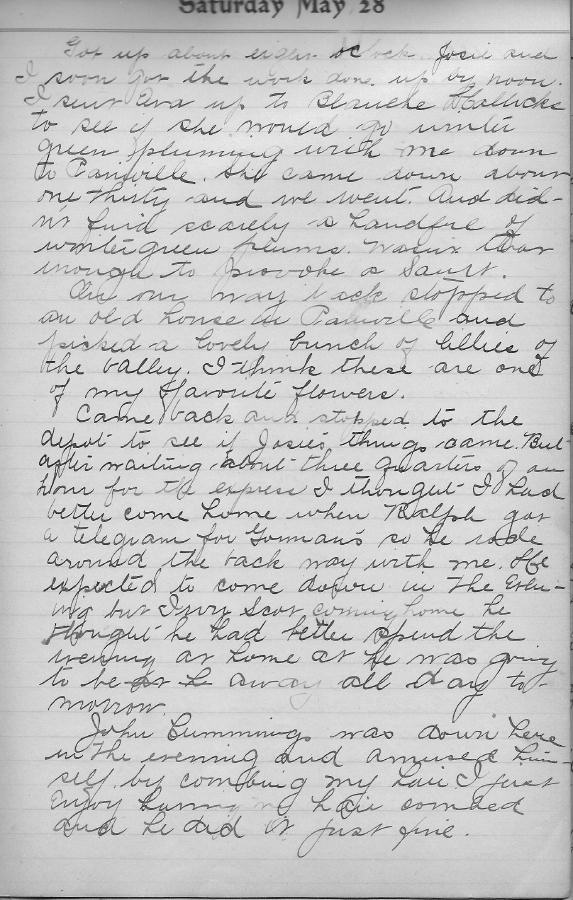 Saturday May 28
Got up about eight oclock. Josie and
I soon got the work done up by noon.
I sent Ava up to Blanche
to see if she would go winter
green plumming with me down
to Painville. She came down about
one thirty and we went. And did-
n't find scarely a handful of
wintergreen plums. Wasn't
enough to provoke a Saint.
On our way back stopped to
an old house in Painville and
picked a lovely bunch of lillies of
the valley. I think these are one
of my favorite flowers.
Came back and stopped to the
depot to see if Josies things came. But
after waiting about three quarters of an
hour for the express I thought I had
better come home when Ralph got
a telegram for so he rode
around the back way with me. He
expected to come down in the Even-
ing but coming home he
thought he had better spend the
evening at home as he was going
to be away all day to-
morrow.
John Cummings was down here
in the evening and amused him-
self by combing my hair. I just
Enjoy having my hair combed
and he did it just fine.